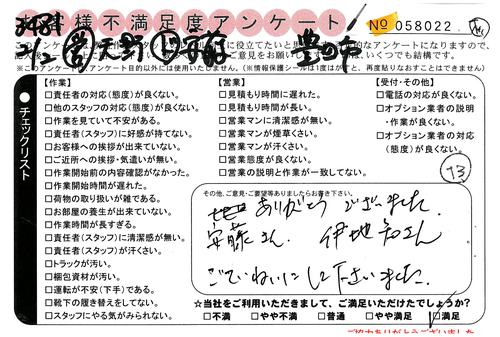 お客様不満足度アンケート
No 058022
2/12
【作業】
□責任者の対応(態度)が良くない。
□他のスタッフの対応(態度)が良くない。
□作業を見ていて不安がある。
□責任者(スタッフ)に好感が持てない。
□お客様への挨拶が出来ていない。
□ご近所への挨拶・気遣いが無い。
□作業開始前の内容確認がなかった。
□作業開始時間が遅れた。
□荷物の取り扱いが雑である。
□お部屋の養生が出来ていない。
□作業時間が長すぎる。
□責任者(スタッフ)に清潔感が無い。
□責任者(スタッフ)が汗くさい。
□トラックが汚い。
□梱包資材が汚い。
□運転が不安(下手)である。
□靴下の履き替えをしてない。
□スタッフにやる気がみられない。
チェックリスト
【営業】
□見積もりに遅れた。
□見積もり時間に長い。
□営業マンに清潔感が無い。
□営業マンが煙草くさい。
□営業マンが汗くさい。
□営業態度が良くない。
□営業の説明と作業が一致してない。
【受付・その他】
□電話の対応が良くない。
□オプション業者の説明
・作業が良くない。
□オプション業者の対応
(態度)が良くない。
73
その他、ご意見・ご要望等ありましたらお書き下さい。
ありがとうございました
安藤さん 伊地知さん
ごていねいにして下さいました.
☆当社をご利用いただきまして、ご満足いただけたでしょうか?
□不満 □やや不満 □普通 □やや満足 □満足
ご協力ありがとうございました